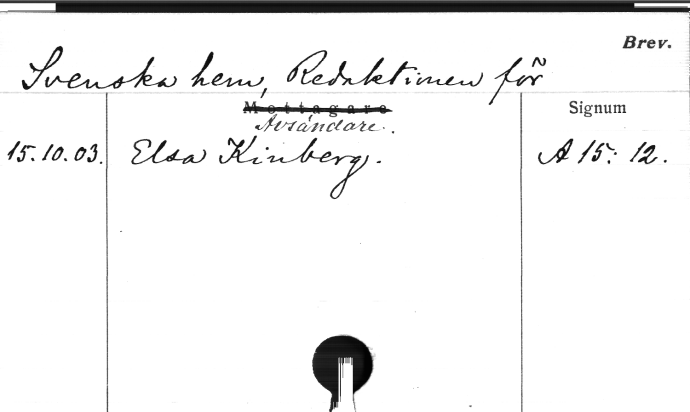 Brev.
Svenska hem, Redaktionen för
Mottagare
Signum
Avsändare.
15.10.03. Elsa Kinberg. A 15: 12.